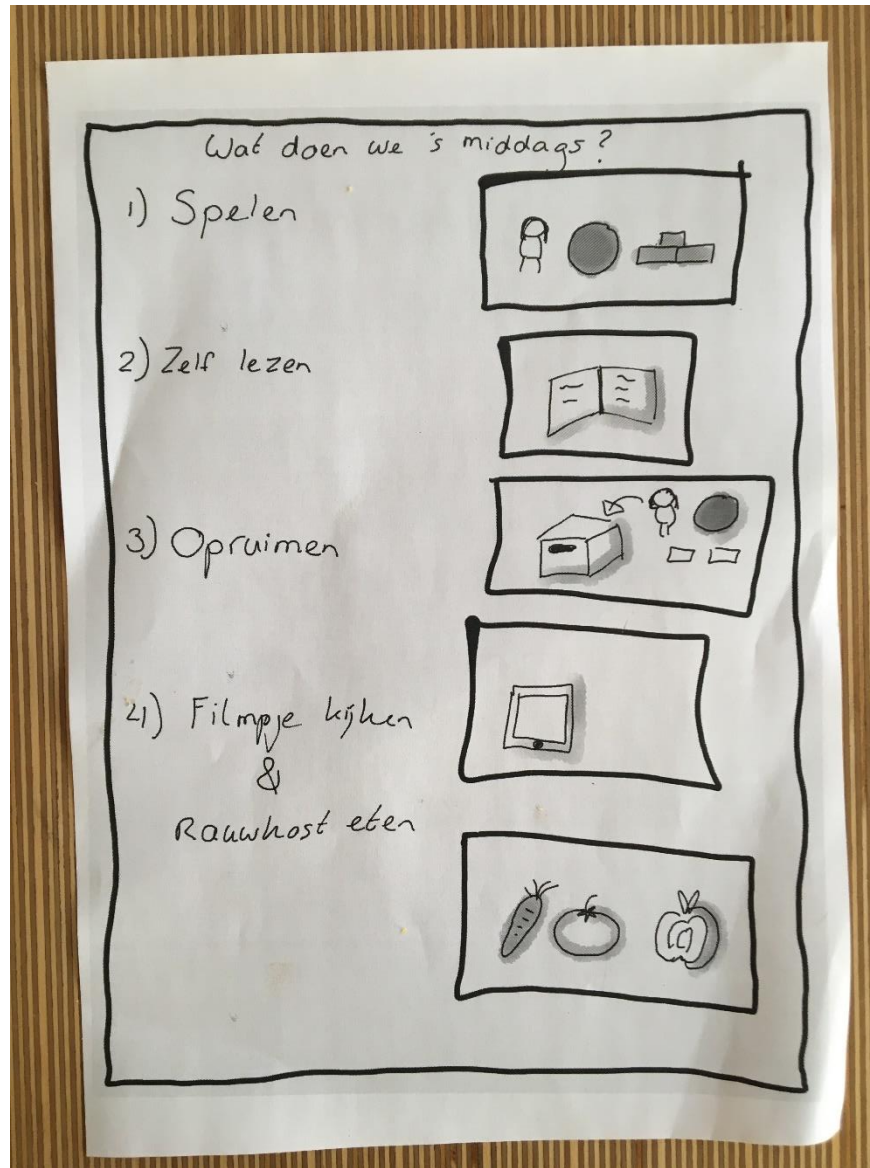 Wat doen we 's middags?
1) Spelen
2) Zelf lezen
3) Opruimen
4) Filmpje kijken
&
Rauwkost eten